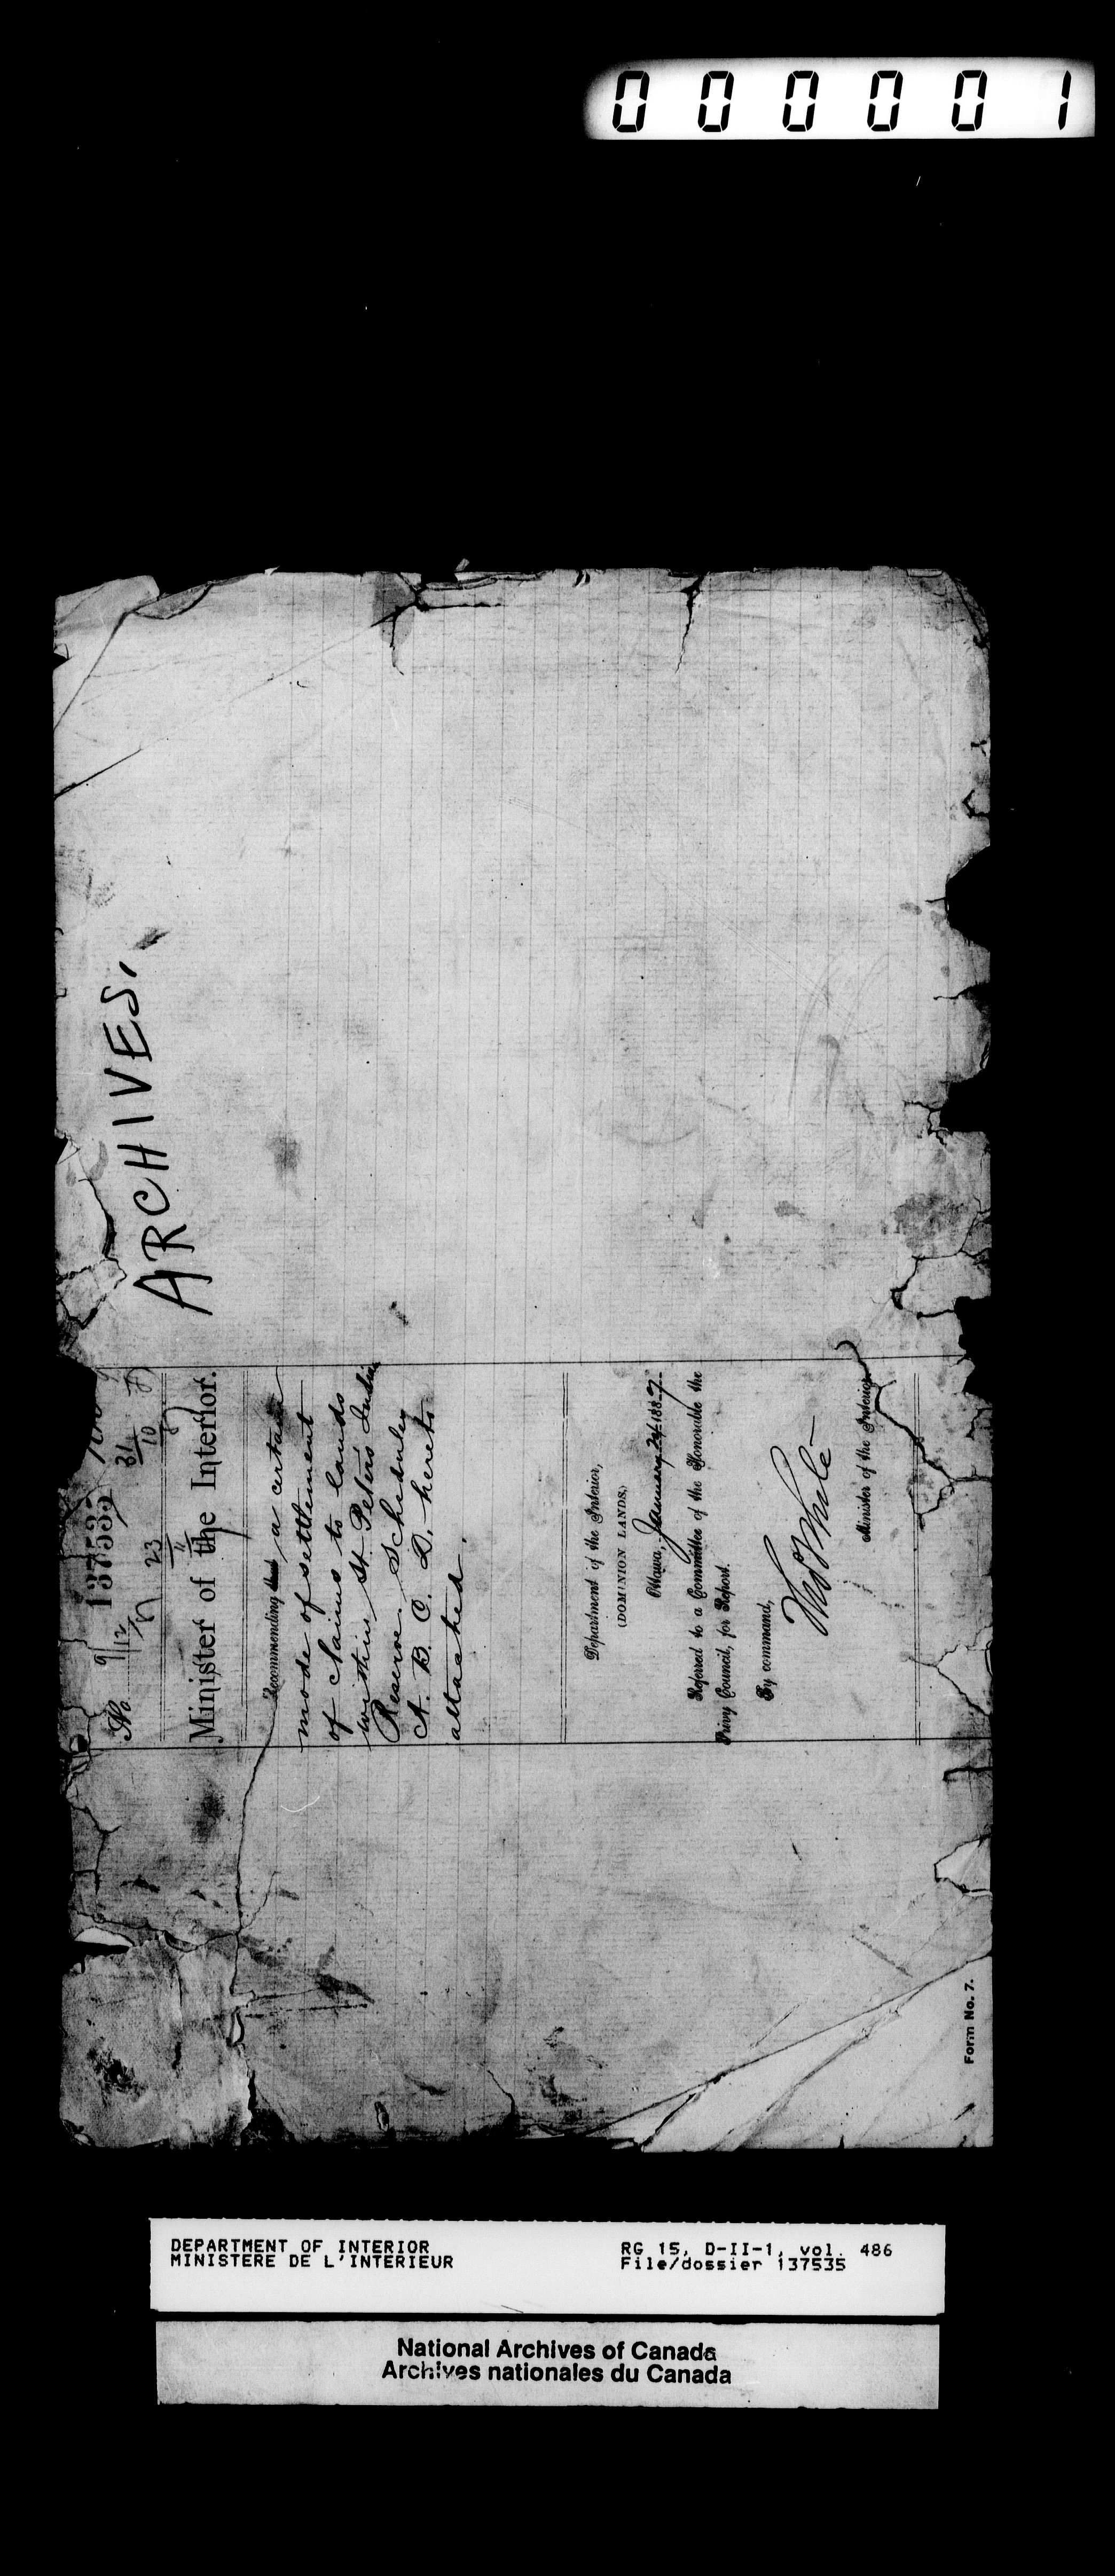 000001
ARCHIVES.
No 137535
9/12
31
10
23
11
Minister of the Interior.
Recommending a certain
mode of settlement
of claims to lands
within St. Peter's Indian
Reserve. Schedules
A. B. C. D. hereto
attached.
Department of the Interior,
(DOMINION LANDS,)
Ottawa, January 24 1887
Referred to a Committee of the Honorable the
Privy Council, for Report.
By command,
Thos White
Minister of the Interior.
Form No. 7.
DEPARTMENT OF INTERIOR
MINISTERE DE L'INTERIEUR
RG 15, D-II-1, vol. 486
File/dossier 137535
National Archives of Canada
Archives nationales du Canada